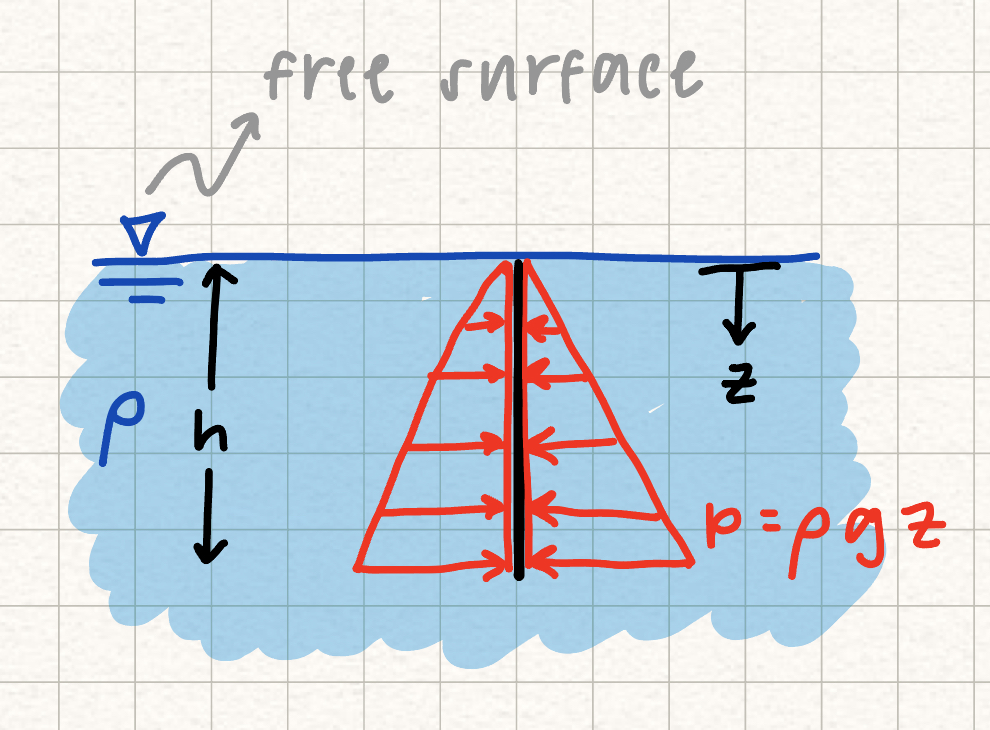 free surface
z
ρ
h
p = ρ g z